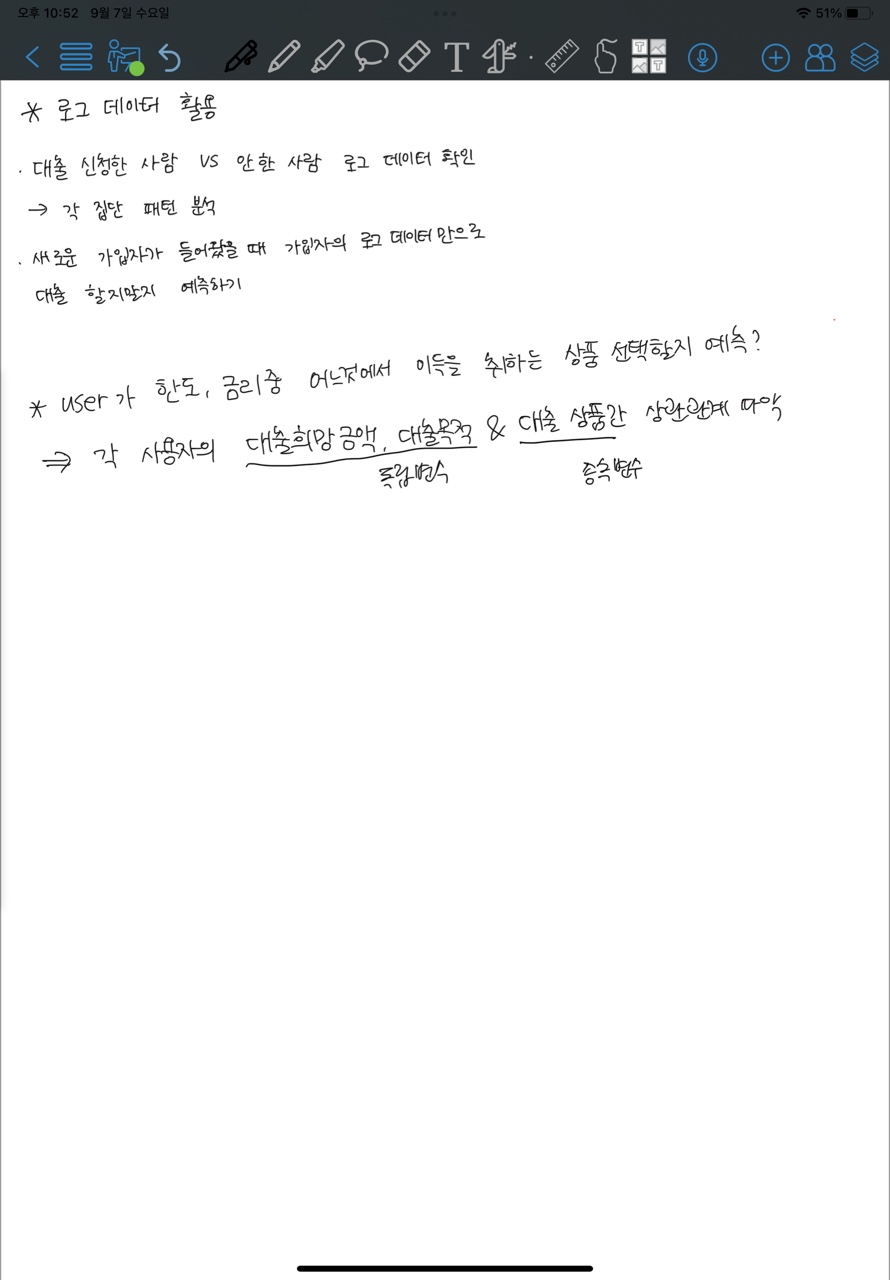 오후 10:52 9월 7일 수요일
51%
* 로그 데이터 활용
· 대출 신청한 사람 VS 안한 사람 로그 데이터 확인
→ 각 집단 패턴 분석
· 새로운 가입자가 들어왔을 때 가입자의 로그 데이터만으로
대출 할지말지 예측하기
* user가 한도, 금리중 어느것에서 이득을 취하는 상품 선택할지 예측?
⇒ 각 사용자의 대출희망금액, 대출목적 & 대출 상품간 상관관계 파악
독립변수 종속변수